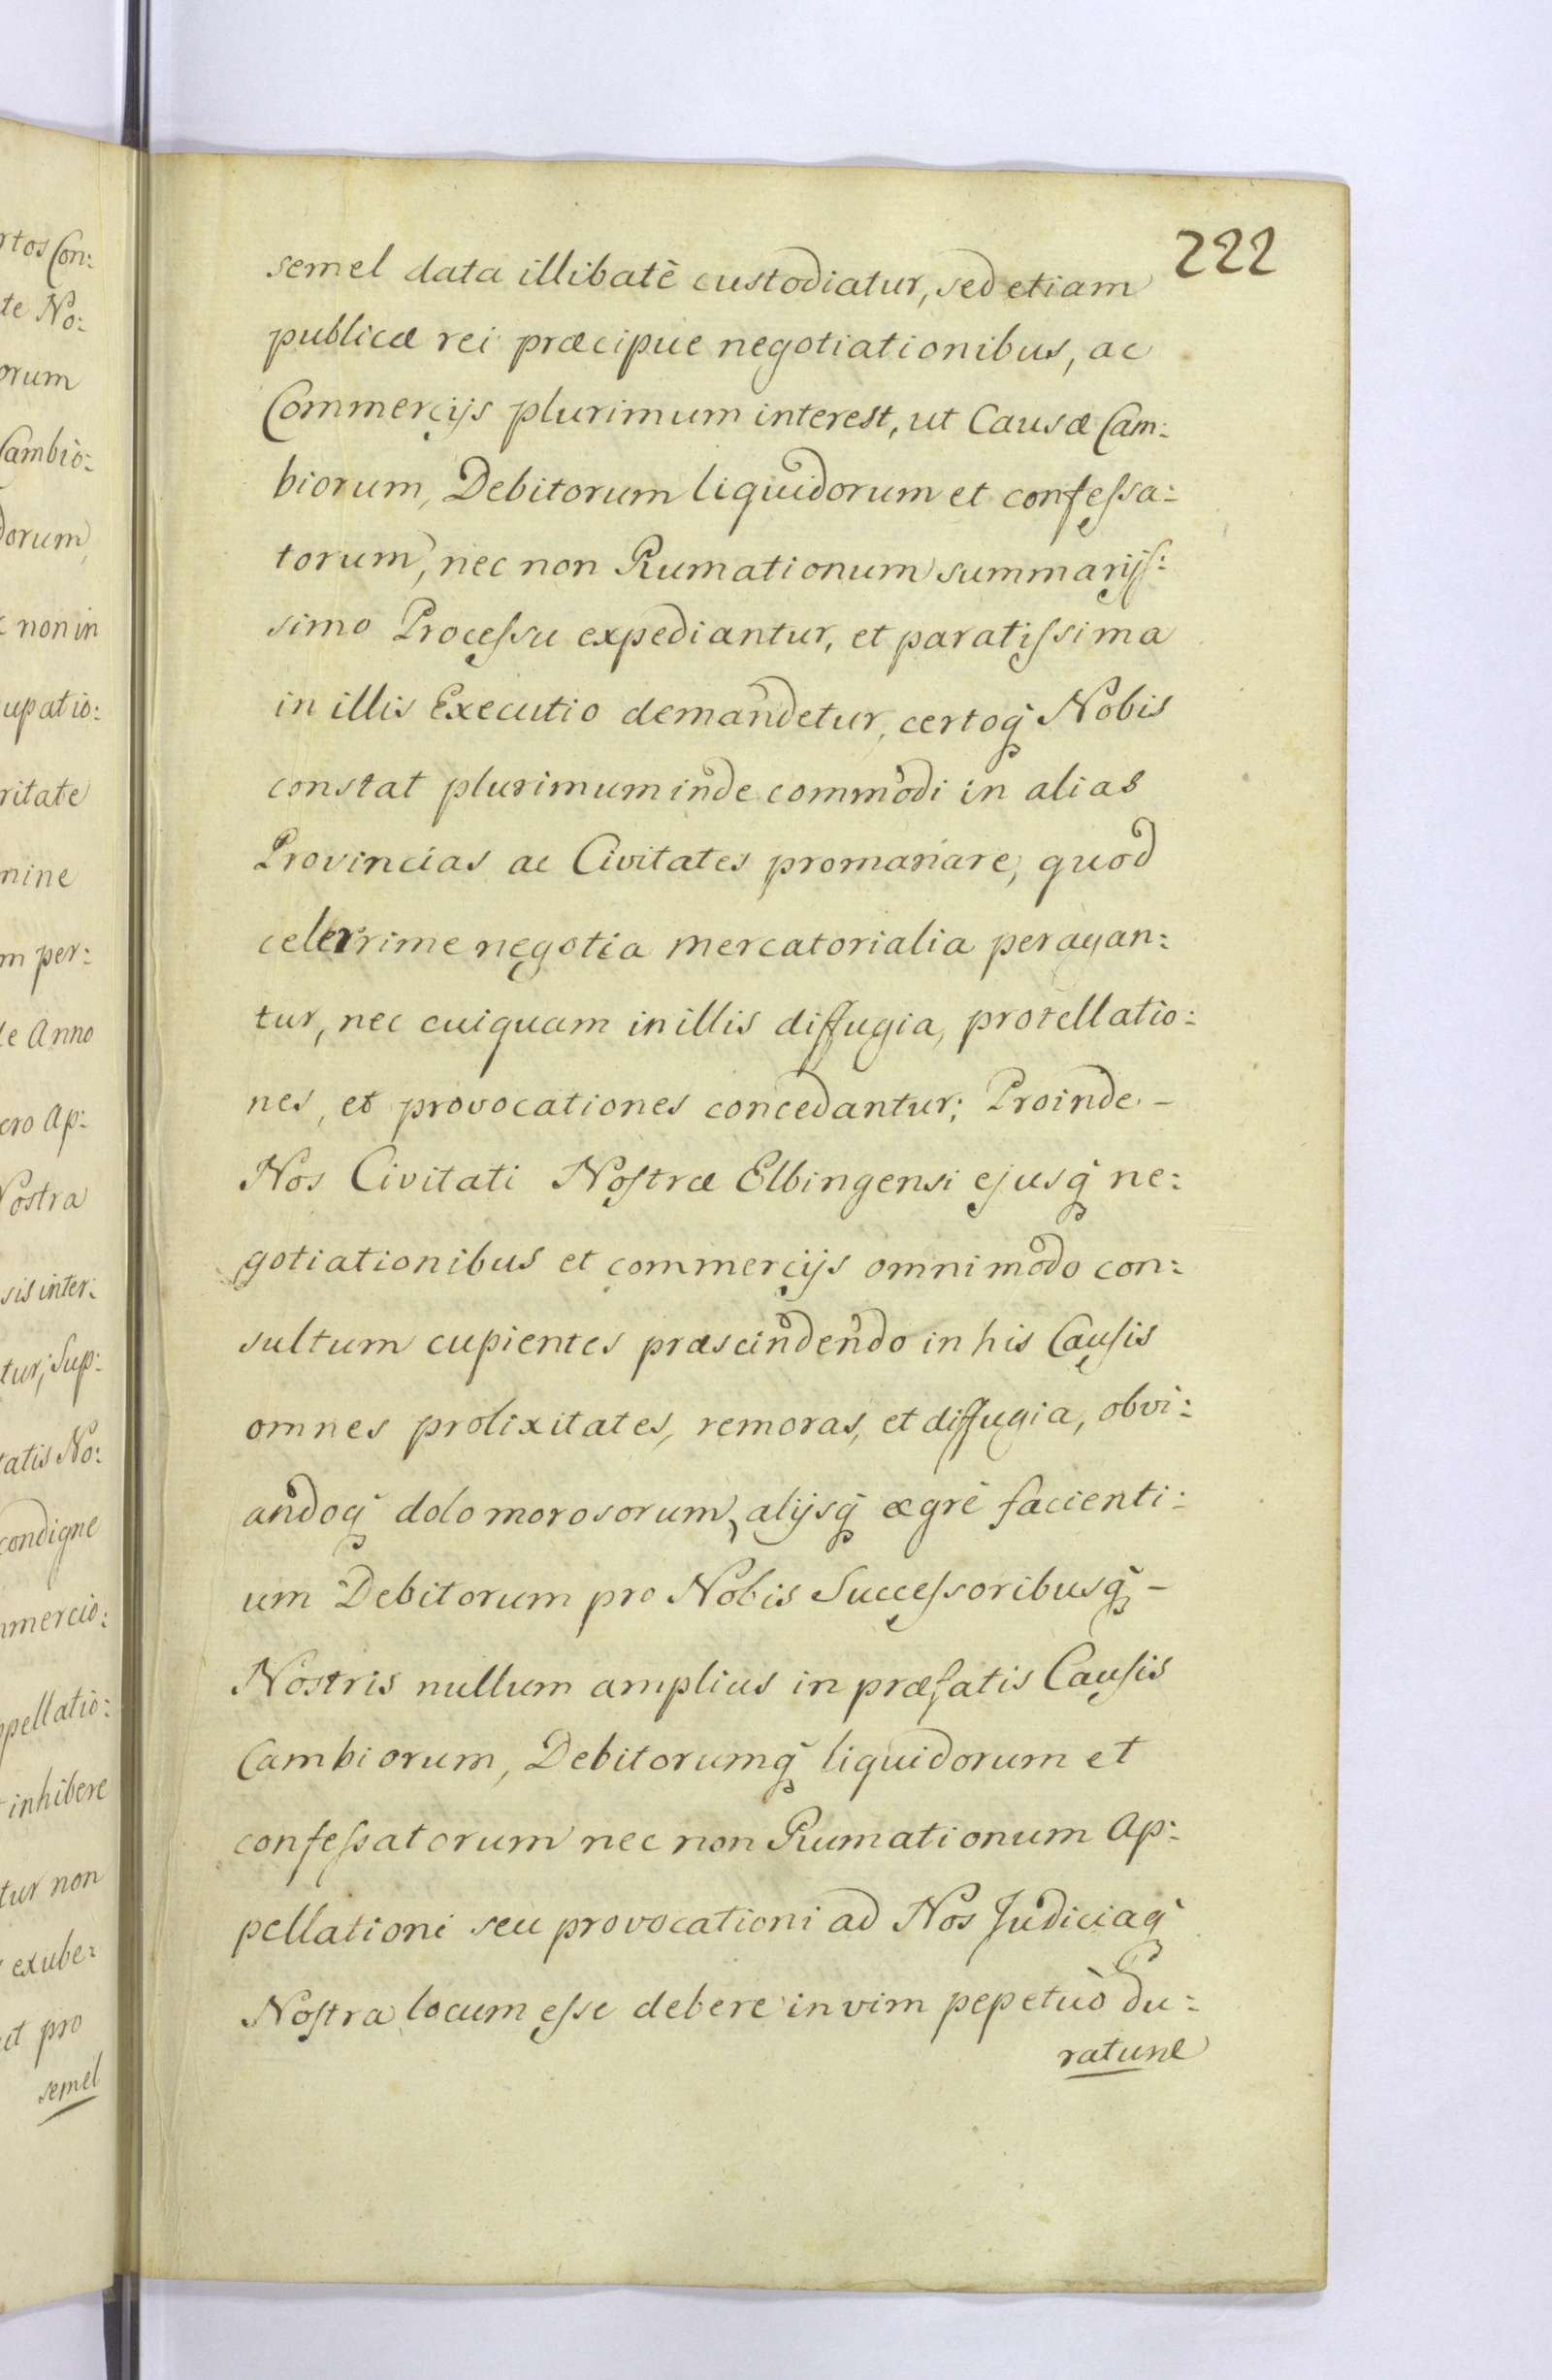 222
semel data illibatè custodiatur, sed etiam
publicæ rei præcipue negotiationibus, ac
Commercijs plurimum interest, ut Causæ Cam:
biorum, Debitorum liquidorum et confeſsa:
torum, nec non Rumationum summarijſ:
simo Proceſsu expediantur, et paratiſsima
in illis Executio demandetur, certoq̃ Nobis
constat plurimum inde commodi in alias
Provincias ac Civitates promanare, quod
celerrime negotia mercatorialia peragan:
tur, nec cuiquam in illis diffugia, protellatio:
nes, et provocationes concedantur; Proinde -
Nos Civitati Noſtræ Elbingensi ejusq̃ ne:
gotiationibus et commercijs omnimodo con:
sultum cupientes præscindendo in his Cauſis
omnes prolixitates, remoras, et diffugia, obvi:
andoq̃ dolo morosorum, alijsq̃ ægrè facienti:
um Debitorum pro Nobis Succeſsoribusq̃ -
Nostris nullum amplius in præfatis Cauſis
Cambiorum, Debitorumq̃ liquidorum et
confeſsatorum nec non Rumationum Ap:
pellationi seu provocationi ad Nos Judiciaq̃
Noſtra locum eſse debere in vim pepetuò du:
ratune
rtos Con:
te No:
orum
Cambio:
dorum,
c non in
upatio:
ritate
mine
m per:
le Anno
ero Ap:
Nostra
sis inter:
tur; Sup:
tatis No:
condigne
mmercio:
ppellatio:
inhibere
tur non
exube:
et pro
semel